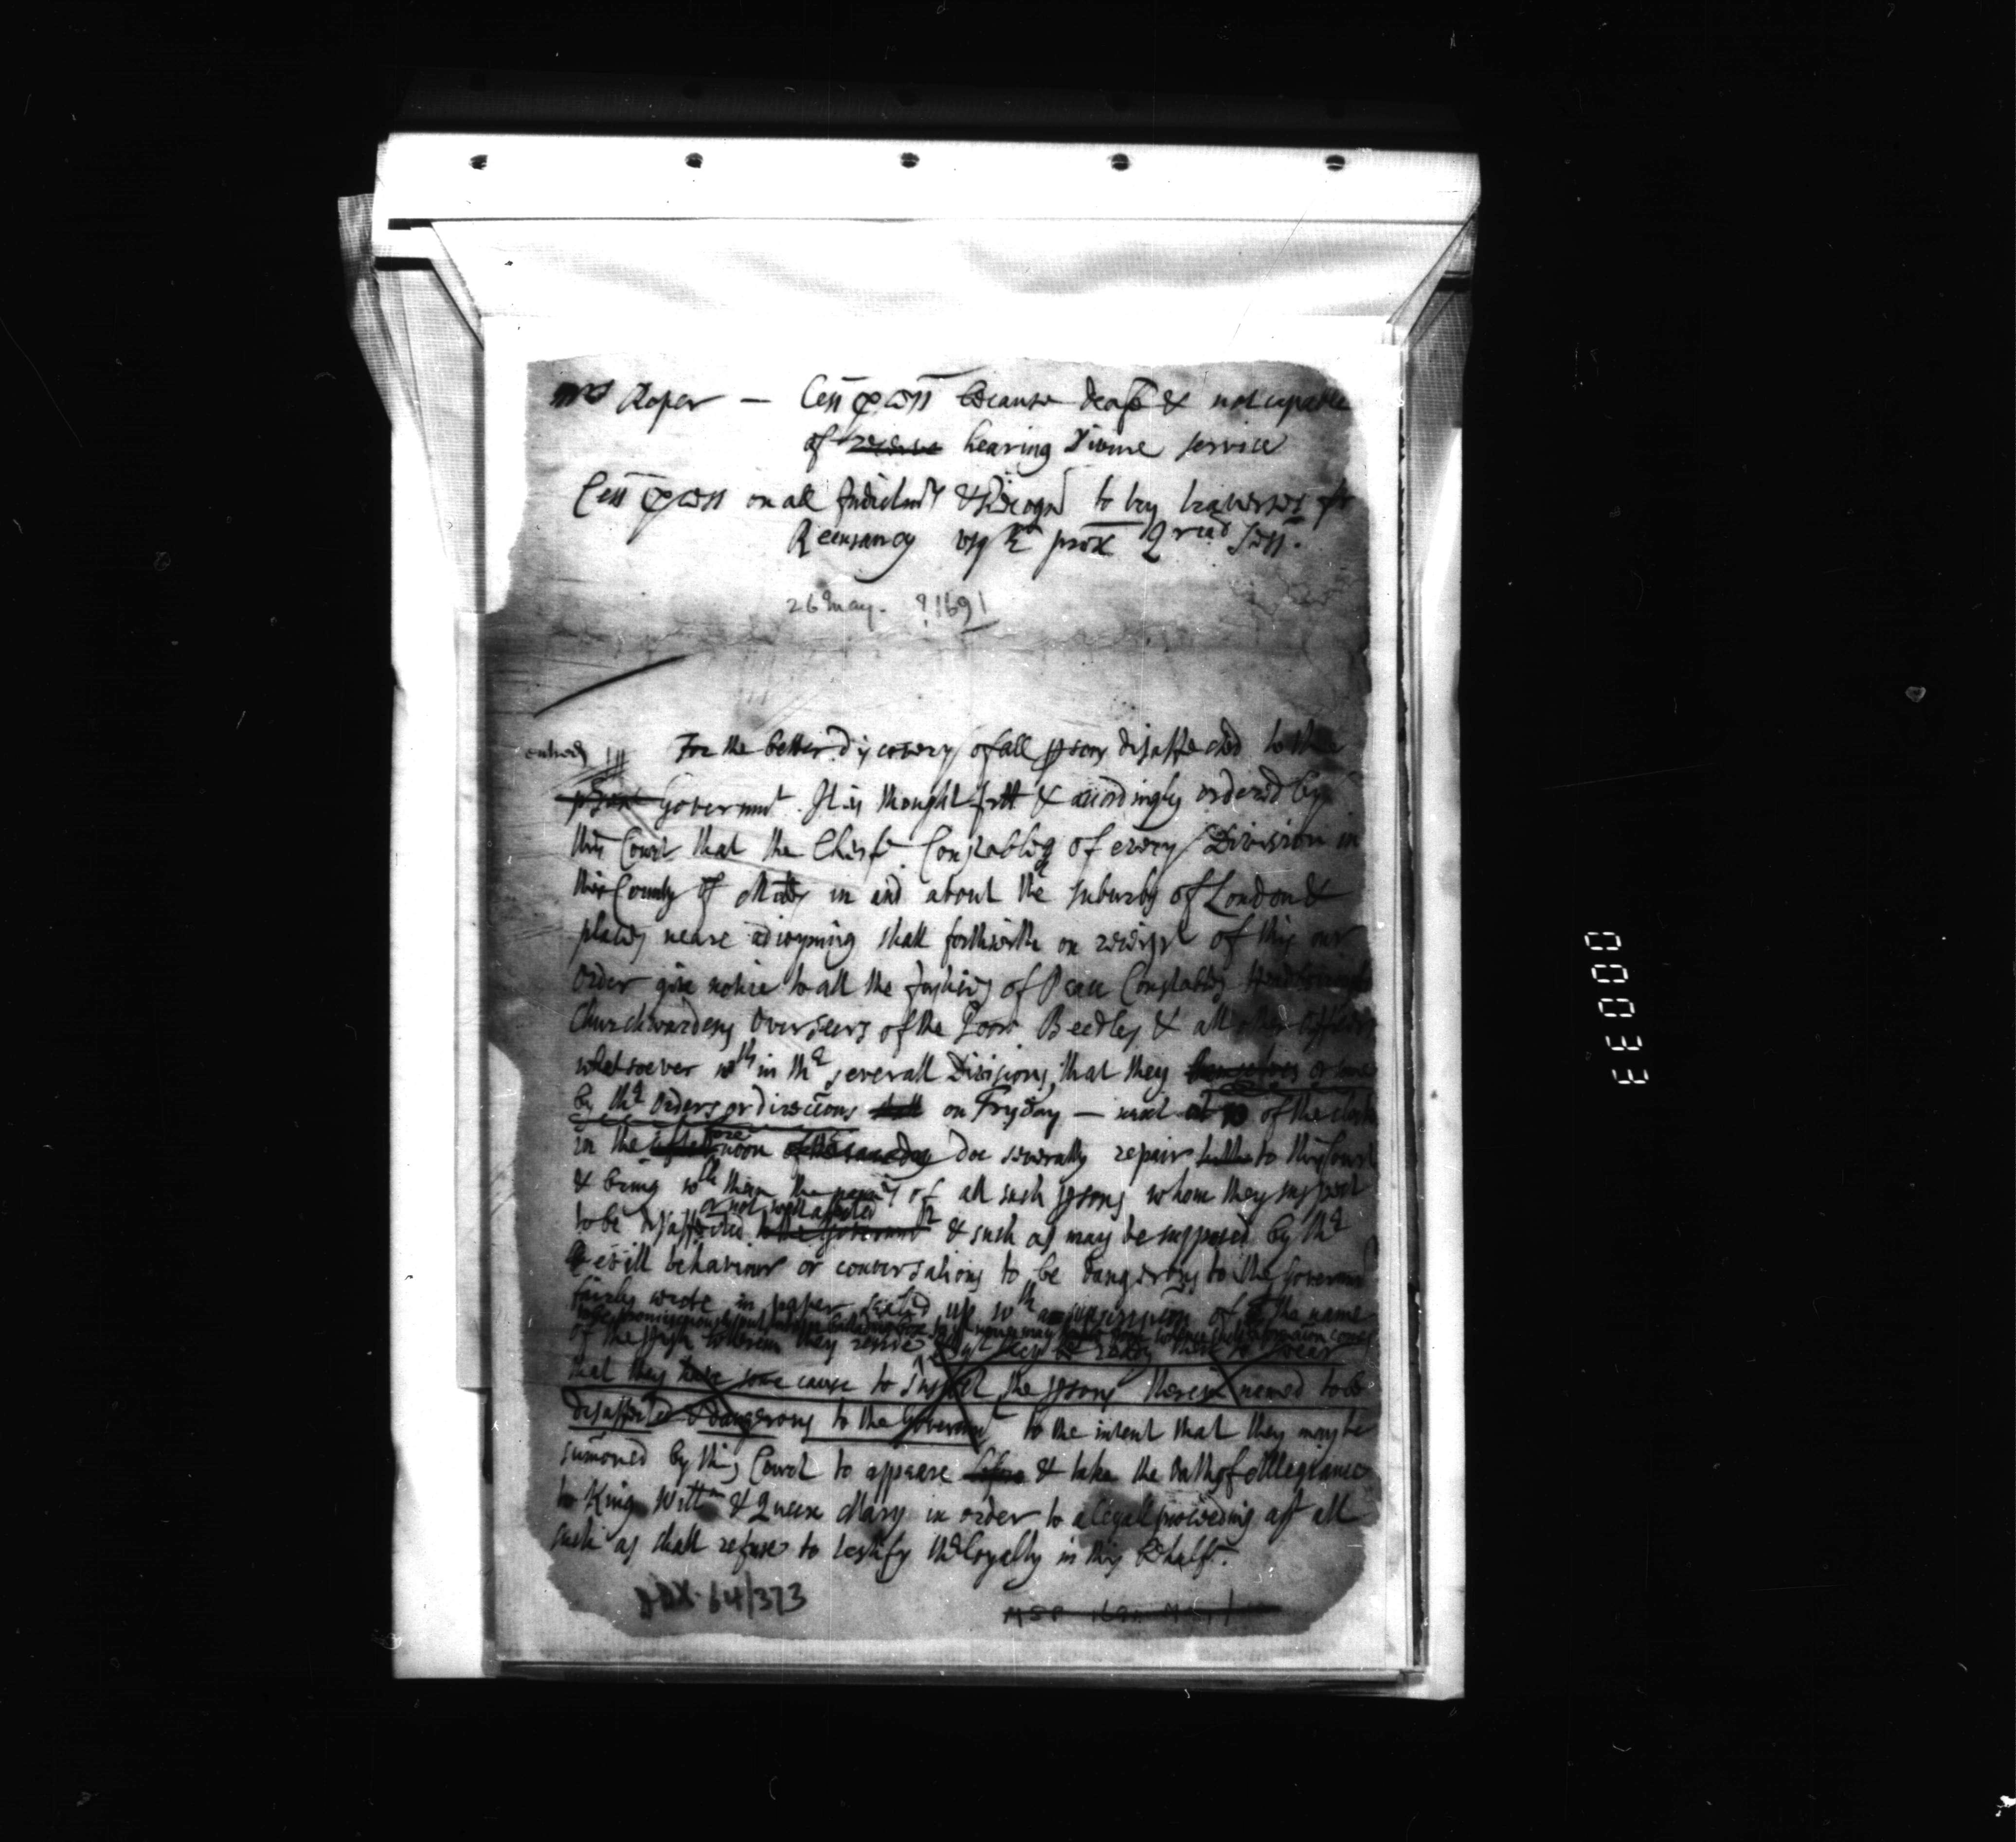 Mrs Roper — Cess p̱cess because deafe & not capable
of receive hearing Divine service
Cess p̱cess on all Indictmts & Recogn to try traverses for
Recusancy usq prox Qrial Sess.
26 May. ?1691
entred For the better discovery of all p̱sons disaffected to the
p̱sent Governmt. It is thought fitt & accordingly ordered by
this Court that the Chiefe Constables of every Division in
this County of Midds in and about the suburbs of London &
places neare adioyning shall forthwith on receipt of this our
Order give notice to all the Justices of Peace Constables Headboroughs
Churchwardens Overseers of the Poore Beedles & all other officers
whatsoever wth in the severall Divisions, that they themselves or some
by the Orders or direcc̄ons shall on Fryday — next at 10 of the clock
in the after fore noon of the same day doe severally repair to this Court
& bring wth them the names of all such p̱sons whom they suspect
or not well affected
to be disaffected to the Governmt & such as may be supposed by the
evill behaviour or conversations to be dangerous to the Governmt
fairly wrote in paper sealed up wth a superscripc̄on of the name
of the p̱ish wherein they reside
that they have some cause to suspect the p̱sons therein named to be
disaffected & dangerous to the Governmt to the intent that they may be
sum̄oned by this Court to appeare before & take the Oath of Allegiance
to King Willm & Queen Mary in order to a legall proceeding agt all
such as shall refuse to testify the loyalty in this behalfe.
DDX. 64/373
00033